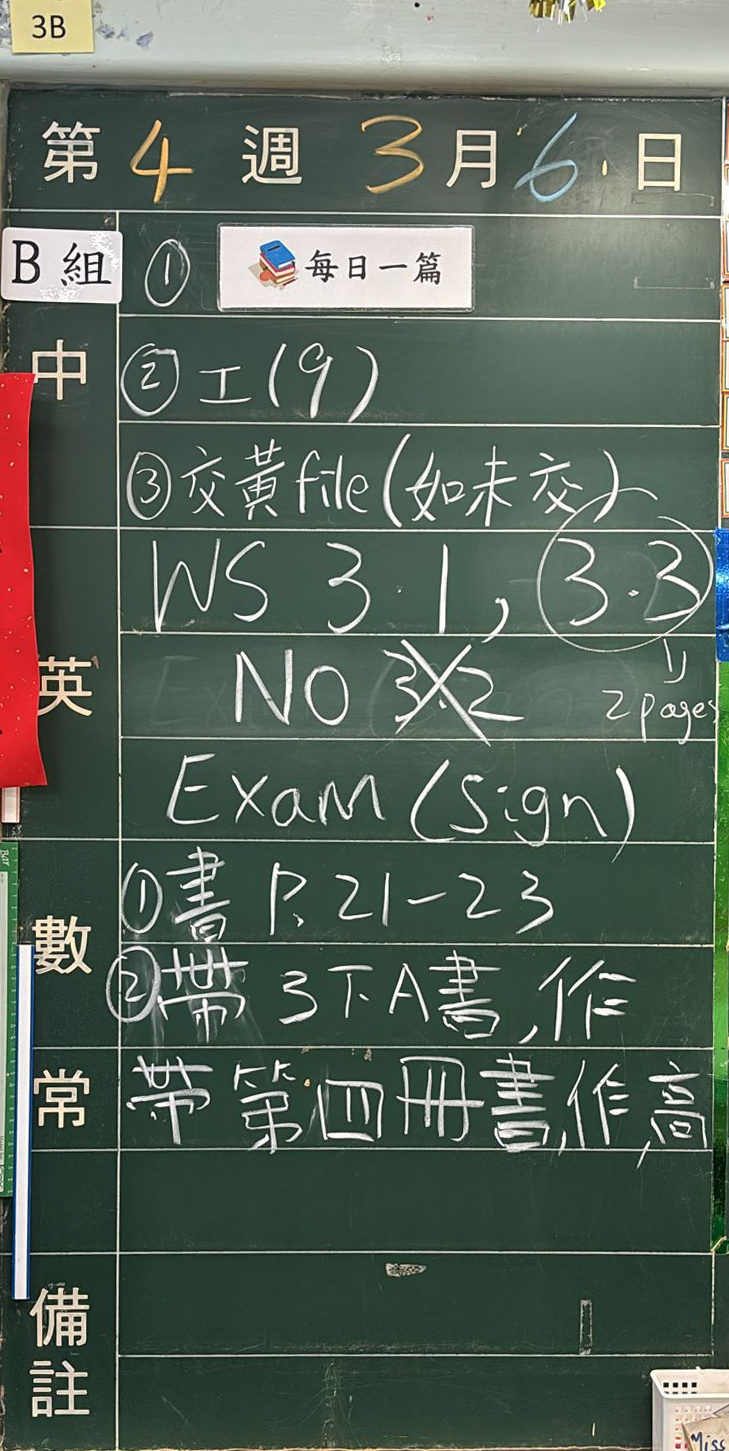 3B
第 4 週 3 月 6 日
B 組 ① 每日一篇
中 ② 工(9)
③ 交黃file(如未交)
WS 3.1, 3.3
英 NO 3.2 2 pages
Exam (sign)
① 書 P.21-23
數 ② 帶 3下A書,作
常 帶第四冊書,作,高
備註
Miss